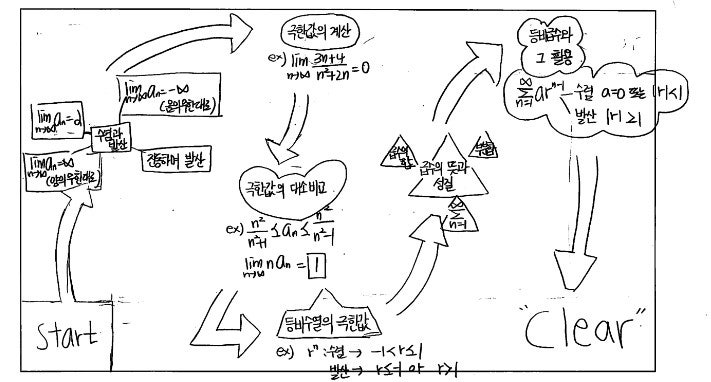 start
lim n→∞ aₙ=∞
(양의무한대로)
lim n→∞ aₙ=α
lim n→∞ aₙ=-∞
(음의무한대로)
수렴과
발산
진동하며 발산
극한값의 계산
ex) lim n→∞ 3n+4/n²+2n=0
극한값의 대소비교
ex) n²/n²+1 ≤ aₙ ≤ n²/n²-1
lim n→∞ naₙ = 1
등비수열의 극한값
ex) rⁿ : 수렴 → -1<r≤1
발산 → r≤-1 or r>1
급수의 뜻과
성질
급수의
합
부분합
∞ Σ n=1
등비급수와
그 활용
∞ Σ n=1 arⁿ⁻¹ 수렴 a=0 또는 |r|<1
발산 |r|≥1
"Clear"